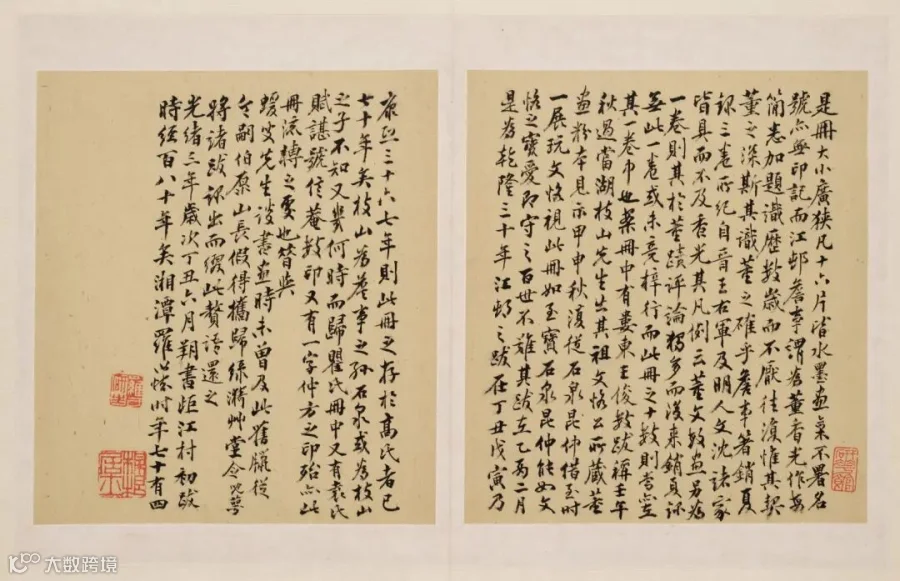 是冊大小廣狹凡十六片皆水墨畫氣不署名
號亦無印記而江邨詹事謂為董香光作每
簡忘加題識歷數歲而不厭往復惟其契
董之深斯其識董之確乎詹事著銷夏
錄三卷所紀自晉王右軍及明人文沈諸家
皆具而不及香光其凡例云董文敏畫另為
一卷則其於董蹟評論獨多而後來銷夏錄
無此一卷或未竟梓行而此冊之十數則當在
其一卷中也葉冊中有婁東王俊數跋稱壬午
秋過當湖枝山先生出其祖文恪公所藏董
畫粉本見示甲申秋復從石泉昆仲借至時
一展玩文恪視此冊如至寶石泉昆仲能如文
恪之寶愛即守之百世不難其跋在乙丙二月
是為乾隆三十年江邨之跋在丁丑戊寅乃
康熙三十六七年則此冊之存於高氏者已
七十年矣枝山為詹事之孫石泉或為枝山
之子不知又幾何時而歸瞿氏冊中又有袁氏
賦諶號信菴數印又有一字仲方之印殆亦此
冊流轉之更也昔與
蝯叟先生談書畫時未曾及此舊臘從
令嗣伯原山長假得攜歸綠漪艸堂令兒萼
將諸跋錄出而綴此贅語還之
光緒三年歲次丁丑六月朔書距江村初跋
時經百八十年矣湘潭羅汝懷時年七十有四
大数跨境